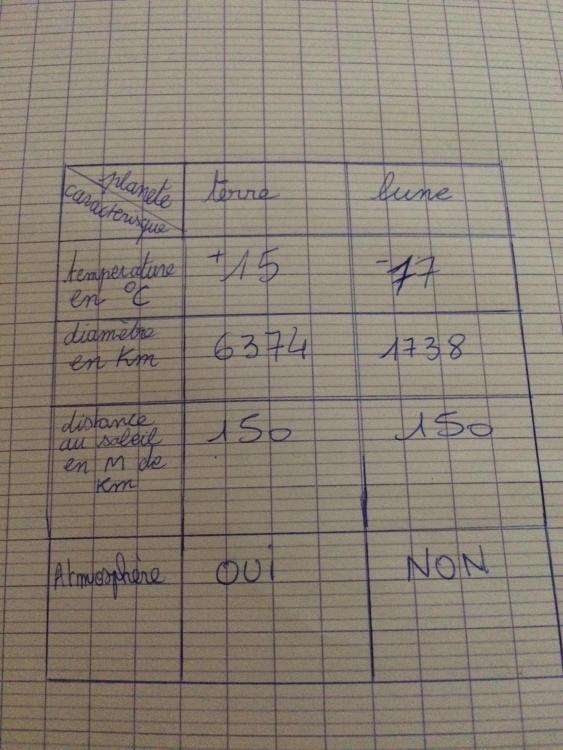 planete terre lune
caracterisque
température +15 -77
en °C
diamètre 6374 1738
en Km
distance 150 150
au soleil
en M de
Km
Atmosphère OUI NON